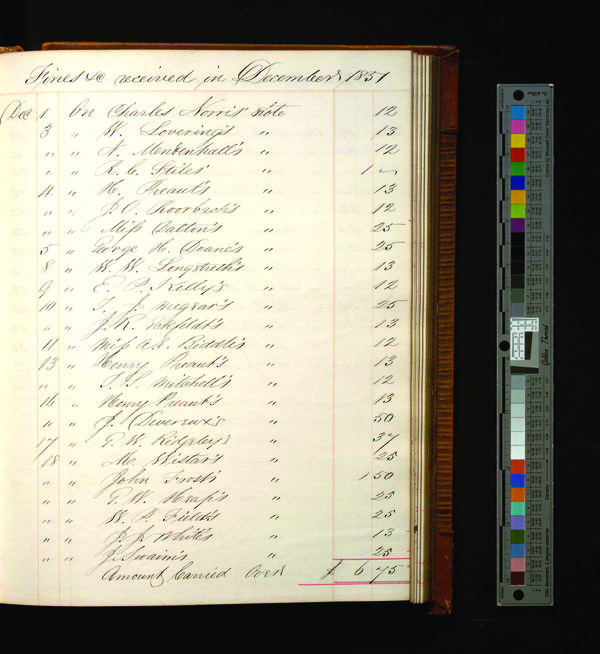 Fines &c received in December 1851
Dec 1 On Charles Norris' note 12
3 " W. Lovering's " 13
" " N. Mendenhall's " 12
" " R. C. Stiles' " 1 "
4 " H. Preaut's " 13
" " J. O. Roorbach's " 12
" " Miss Dalton's " 25
5 " George H. Doane's " 25
8 " W. W. Longstreth's " 13
9 " E. P. Kelly's " 12
10 " T. J. Megear's " 25
" " J. K. " 13
11 " Miss A. E. Biddle's " 12
13 " Henry Preaut's " 13
" " S. S. Mitchell's " 12
16 " Henry Preaut's " 13
" " J. Devereux's " 50
17 " G. W. Ridgley's 37
18 " M. Wistar's " 25
" " John Frost's " 1 50
" " G. W. " 25
" " W. P. Field's " 25
" " J. J. White's " 13
" " J. Swaim's " 25
Amount Carried Over $ 6.75